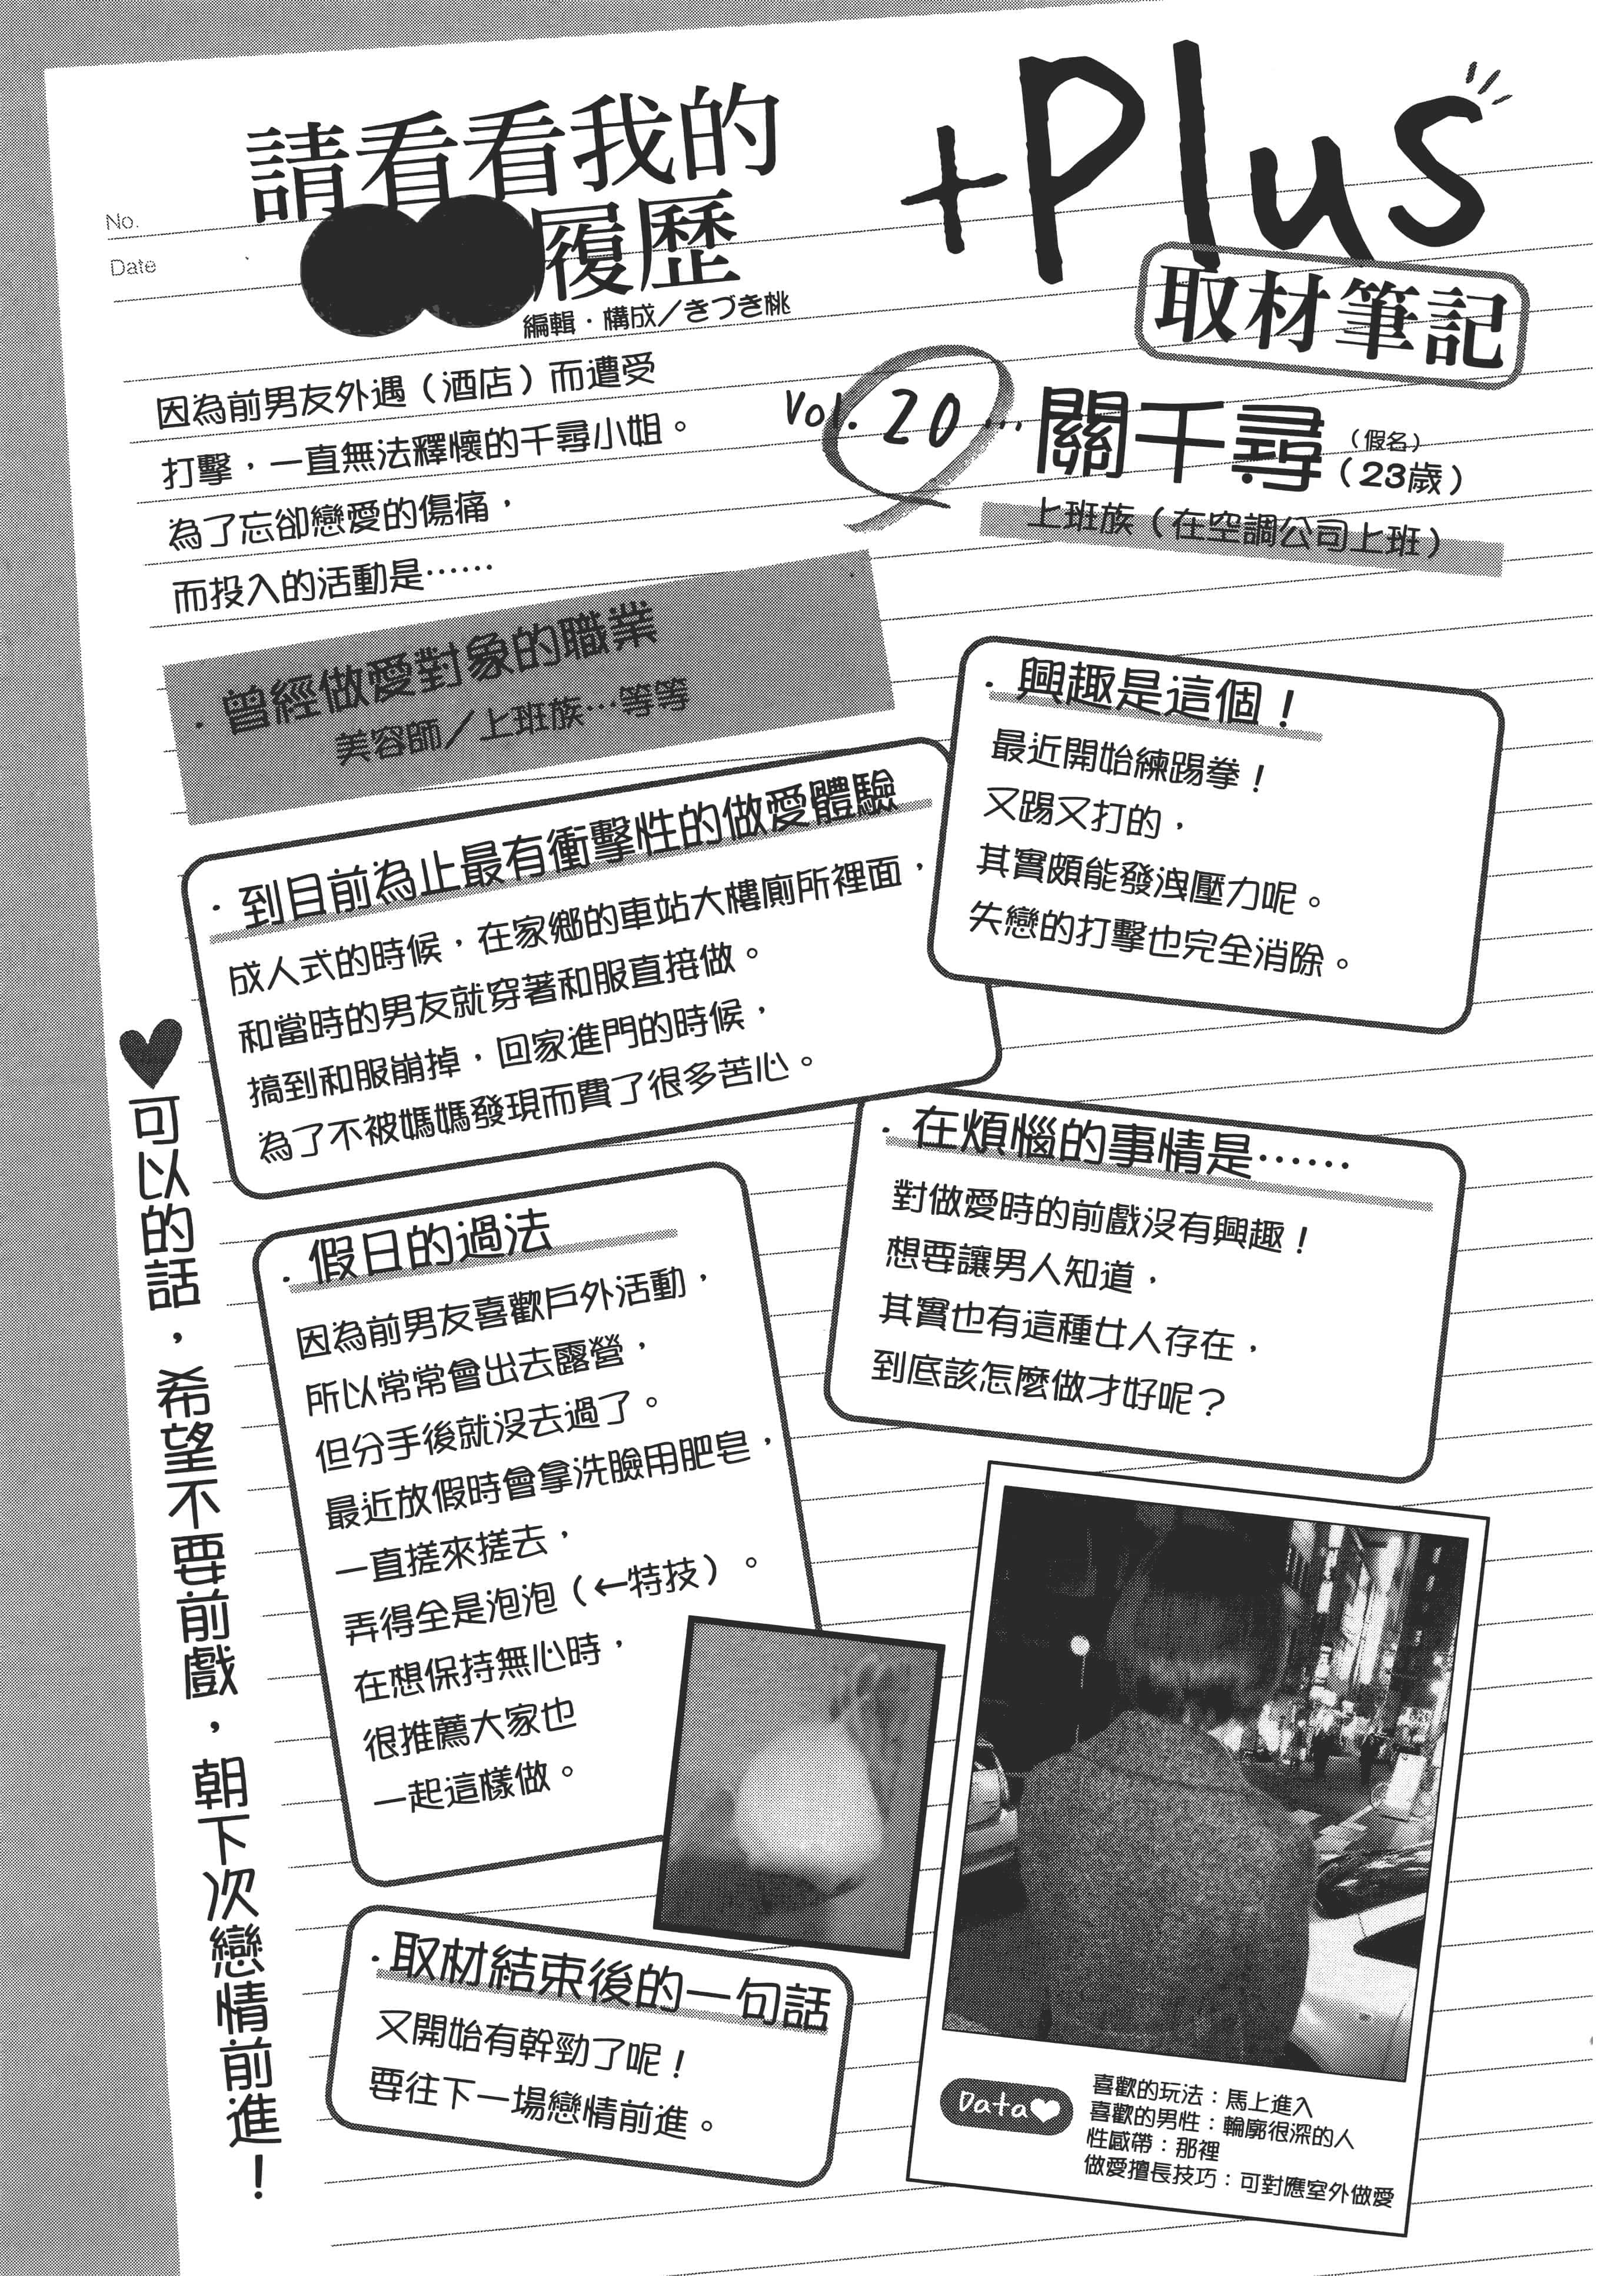 +Plus
取材筆記
請看看我的
●●履歷
編輯・構成／きづき桃
No.
Date
Vol.20…關千尋（假名）（23歲）
上班族（在空調公司上班）
因為前男友外遇（酒店）而遭受
打擊，一直無法釋懷的千尋小姐。
為了忘卻戀愛的傷痛，
而投入的活動是……
・曾經做愛對象的職業
美容師／上班族…等等
・興趣是這個！
最近開始練踢拳！
又踢又打的，
其實頗能發洩壓力呢。
失戀的打擊也完全消除。
・到目前為止最有衝擊性的做愛體驗
成人式的時候，在家鄉的車站大樓廁所裡面，
和當時的男友就穿著和服直接做。
搞到和服崩掉，回家進門的時候，
為了不被媽媽發現而費了很多苦心。
・在煩惱的事情是……
對做愛時的前戲沒有興趣！
想要讓男人知道，
其實也有這種女人存在，
到底該怎麼做才好呢？
・假日的過法
因為前男友喜歡戶外活動，
所以常常會出去露營，
但分手後就沒去過了。
最近放假時會拿洗臉用肥皂，
一直搓來搓去，
弄得全是泡泡（←特技）。
在想保持無心時，
很推薦大家也
一起這樣做。
・取材結束後的一句話
又開始有幹勁了呢！
要往下一場戀情前進。
Data♥
喜歡的玩法：馬上進入
喜歡的男性：輪廓很深的人
性感帶：那裡
做愛擅長技巧：可對應室外做愛
♥可以的話，希望不要前戲，朝下次戀情前進！